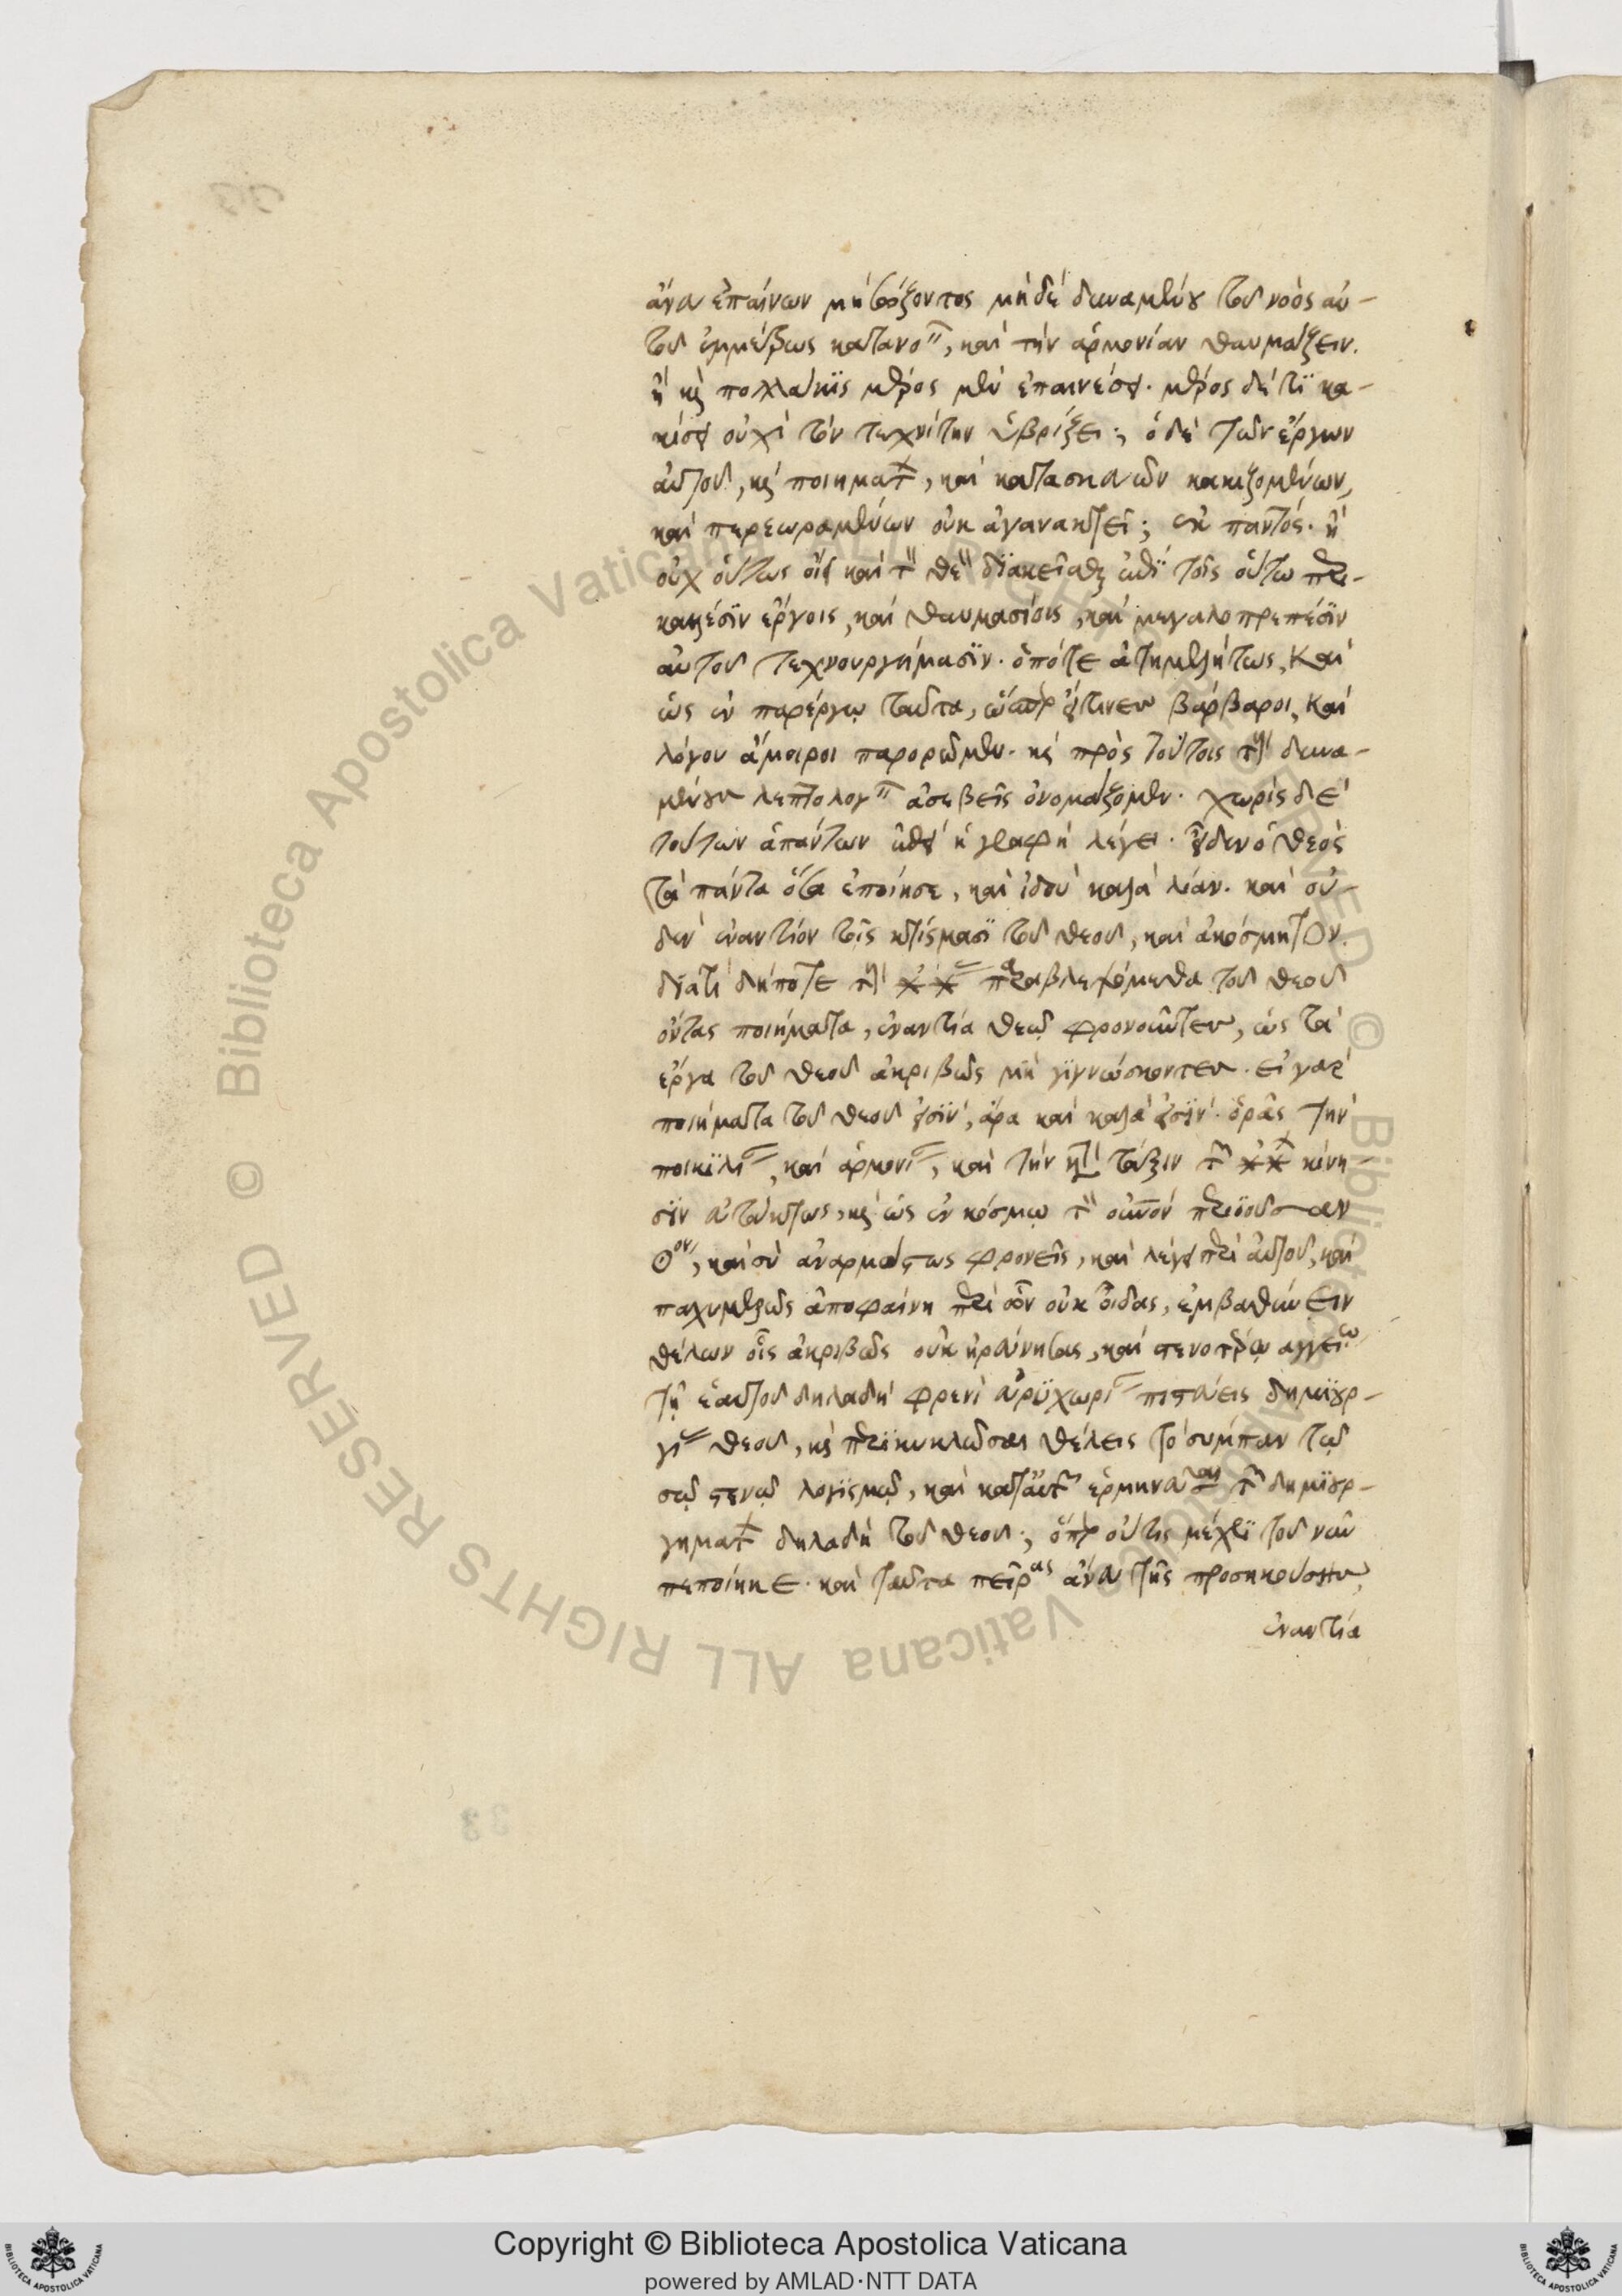 ἄνευ ἐπαίνων μὴ τάξοντος μηδὲ δυναμένου τοῦ νοὸς αὐ-
τοῦ ἐμμέτρως κατανοεῖν, καὶ τὴν ἁρμονίαν θαυμάζειν.
ἢ καὶ πολλάκις μέρος μὲν ἐπαινέσει. μέρος δέ τι κα-
κίσει οὐχὶ τὸν τεχνίτην ὑβρίζει; ὁ δὲ τῶν ἔργων
αὐτοῦ, καὶ ποιημάτων, καὶ κατασκευῶν κακιζομένων,
καὶ περεωραμένων οὐκ ἀγανακτεῖ; ἐκ παντός. ἢ
οὐχ οὕτως οἴει καὶ τὸν θεὸν διακεῖσθαι ἐπὶ τοῖς οὕτω περι-
καλέσιν ἔργοις, καὶ θαυμασίοις, καὶ μεγαλοπρεπέσιν
αὐτοῦ τεχνουργήμασιν. ὁπότε ἀτημελήτως, καὶ
ὡς ἐν παρέργῳ ταῦτα, ὥσπερ οἵτινες βάρβαροι, καὶ
λόγου ἄμοιροι παρορῶμεν. καὶ πρὸς τούτοις τοὺς δυνα-
μένους λεπτολογεῖν ἀσεβεῖς ὀνομάζομεν. χωρὶς δὲ
τούτων ἁπάντων ἡ γραφὴ λέγει. εἶδεν ὁ θεὸς
τὰ πάντα ὅσα ἐποίησε, καὶ ἰδοὺ καλὰ λίαν. καὶ οὐ-
δὲν ἐναντίον τοῖς κτίσμασι τοῦ θεοῦ, καὶ ἀκόσμητον.
διατί δήποτε τοὺς παραβλεψόμεθα τοῦ θεοῦ
ὄντας ποιήματα, ἐναντία θεῷ φρονοῦντες, ὡς τὰ
ἔργα τοῦ θεοῦ ἀκριβῶς μὴ γιγνώσκοντες. εἰ γὰρ
ποιήματα τοῦ θεοῦ εἰσὶν, ἄρα καὶ καλὰ εἰσίν. ὁρᾷς τὴν
ποικιλίαν, καὶ ἁρμονίαν, καὶ τὴν κατὰ τάξιν τῶν κίνη-
σιν εὐτάκτως, καὶ ὡς ἐν κόσμῳ τὸν οὐρανὸν περιιοῦσαν
ὅλον, καὶ σὺ ἀναρμόστως φρονεῖς, καὶ λέγεις περὶ αὐτοῦ, καὶ
παχυμελῶς ἀποφαίνῃ περὶ ὧν οὐκ οἶδας, ἐμβαθύνειν
θέλων οἷς ἀκριβῶς οὐκ ἠρεύνησας, καὶ στενοτέρῳ ἀγγείῳ
τῇ ἑαυτοῦ δηλαδὴ φρενὶ εὐρυχωρίαν πιστεύεις δημιουρ-
γίαν θεοῦ, καὶ περικυκλῶσαι θέλεις τὸ σύμπαν τῷ
σῷ στενῷ λογισμῷ, καὶ κατ' αὐτῶν ἑρμηνεῦσαι τῶν δημιουρ-
γημάτων δηλαδὴ τοῦ θεοῦ; ὅπερ οὔτις μέχρι τοῦ νῦν
πεποίηκε. καὶ ταῦτα πείρας ἄνευ τῆς προσηκούσης,
ἐναντία